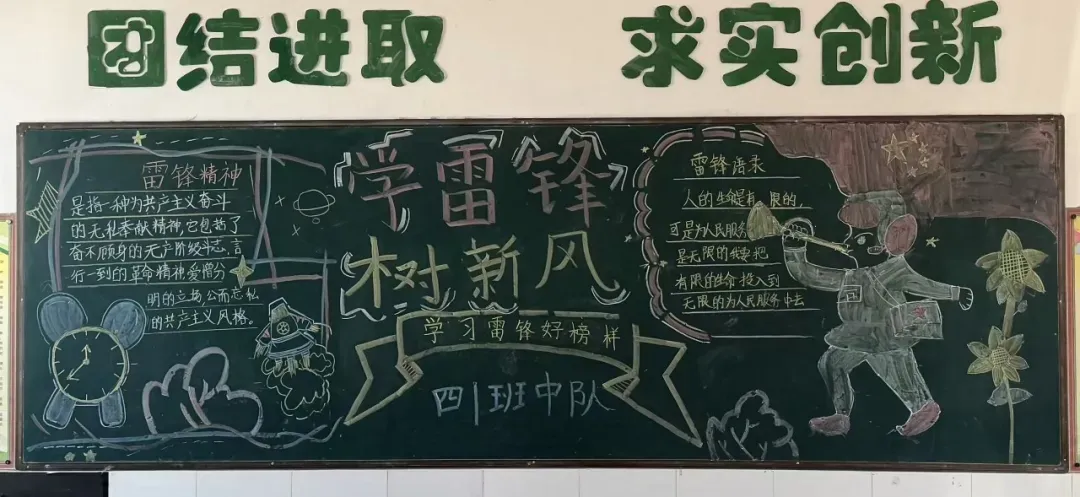 团结进取 求实创新
雷锋精神
是指一种为共产主义奋斗
的无私奉献精神,它包括了
奋不顾身的无产阶级斗志,言
行一到的革命精神爱憎分
明的立场公而忘私
的共产主义风格。
学雷锋
树新风
学习雷锋好榜样
四1班中队
雷锋语录
人的生命是有限的,
可是为人民服务
是无限的我要把
有限的生命投入到
无限的为人民服务中去